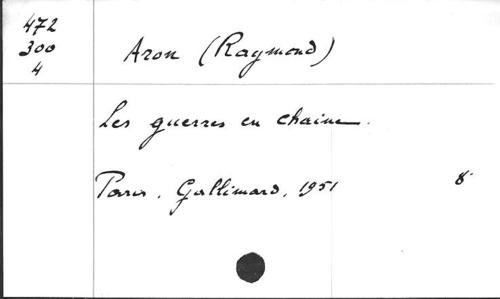 472
300
4
Aron (Raymond)
Les guerres en chaine.
Paris, Gallimard, 1951 8°